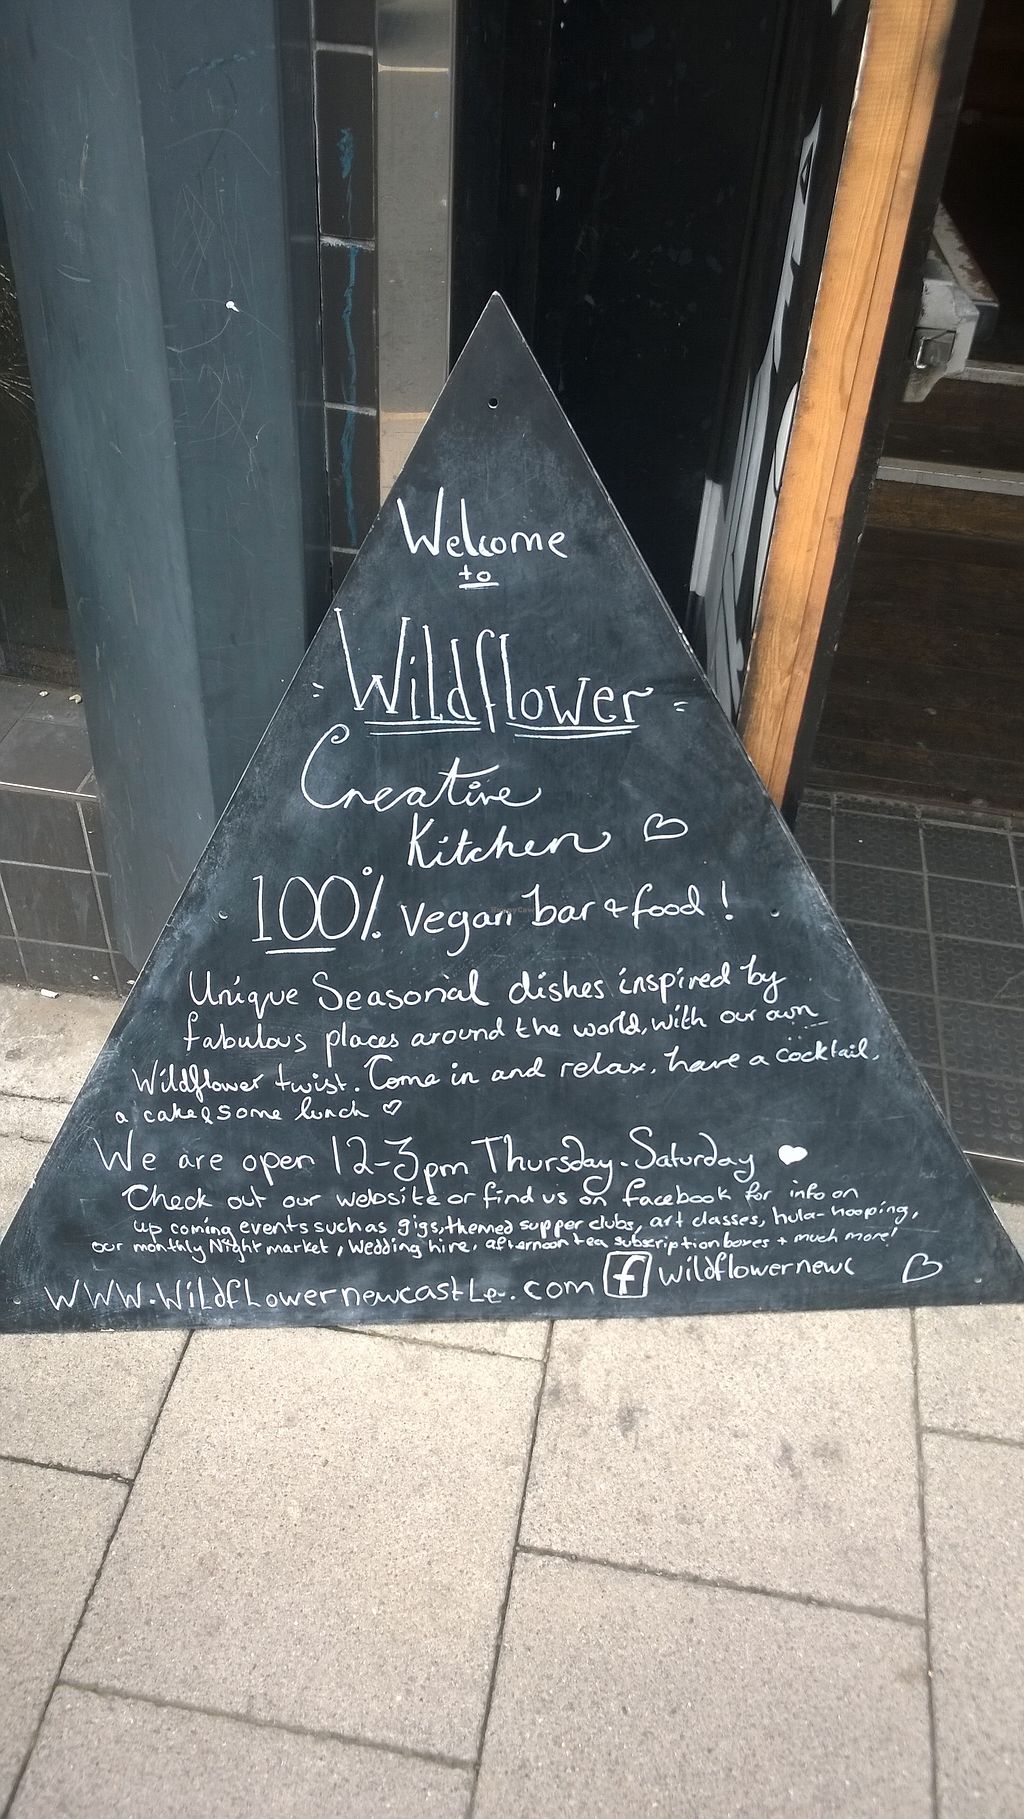 Welcome
to
Wildflower
Creative
Kitchen
100% vegan bar & food!
Unique Seasonal dishes inspired by
fabulous places around the world, with our own
Wildflower twist. Come in and relax, have a cocktail,
a cake & some lunch
We are open 12-3pm Thursday-Saturday
Check out our website or find us on facebook for info on
up coming events such as gigs, themed supper clubs, art classes, hula-hooping,
our monthly Night market, wedding hire, afternoon tea subscription boxes + much more!
www.wildflowernewcastle.com f wildflowernewc